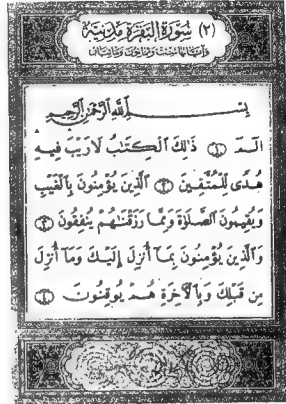 (٢) سُورَةُ الْبَقَرَةِ مَدَنِيَّة
وَآيَاتُهَا سِتٌّ وَثَمَانُونَ وَمِائَتَانِ
بِسْمِ اللَّهِ الرَّحْمَٰنِ الرَّحِيمِ
الٓمٓ ۝١ ذَٰلِكَ الْكِتَٰبُ لَا رَيْبَ فِيهِ
هُدًى لِّلْمُتَّقِينَ ۝٢ الَّذِينَ يُؤْمِنُونَ بِالْغَيْبِ
وَيُقِيمُونَ الصَّلَاةَ وَمِمَّا رَزَقْنَٰهُمْ يُنفِقُونَ ۝٣
وَالَّذِينَ يُؤْمِنُونَ بِمَآ أُنزِلَ إِلَيْكَ وَمَآ أُنزِلَ
مِن قَبْلِكَ وَبِالْآخِرَةِ هُمْ يُوقِنُونَ ۝٤